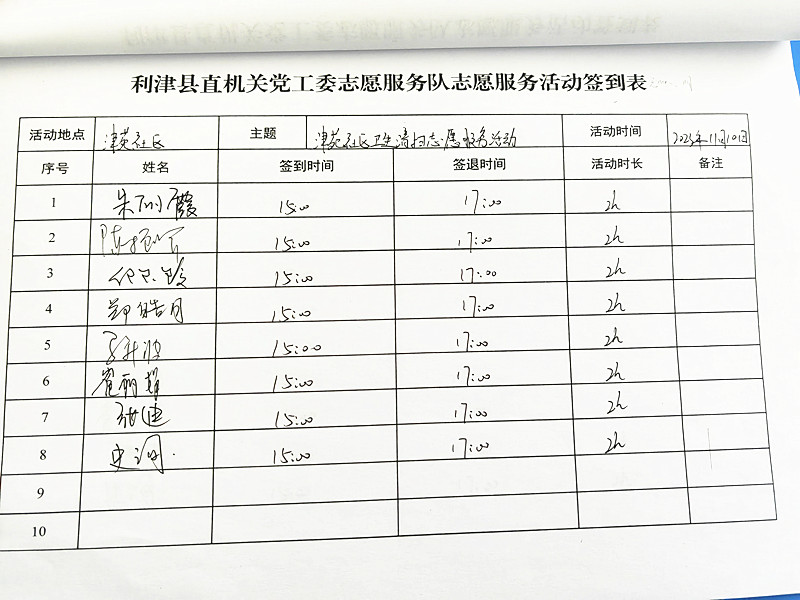 利津县直机关党工委志愿服务队志愿服务活动签到表
活动地点 津苑社区 主题 津苑社区卫生清扫志愿服务活动 活动时间
序号 姓名 签到时间 签退时间 活动时长 备注
1 15:00 17:00 2h
2 15:00 17:00 2h
3 15:00 17:00 2h
4 郭皓月 15:00 17:00 2h
5 15:00 17:00 2h
6 15:00 17:00 2h
7 张迪 15:00 17:00 2h
8 史润 15:00 17:00 2h
9
10